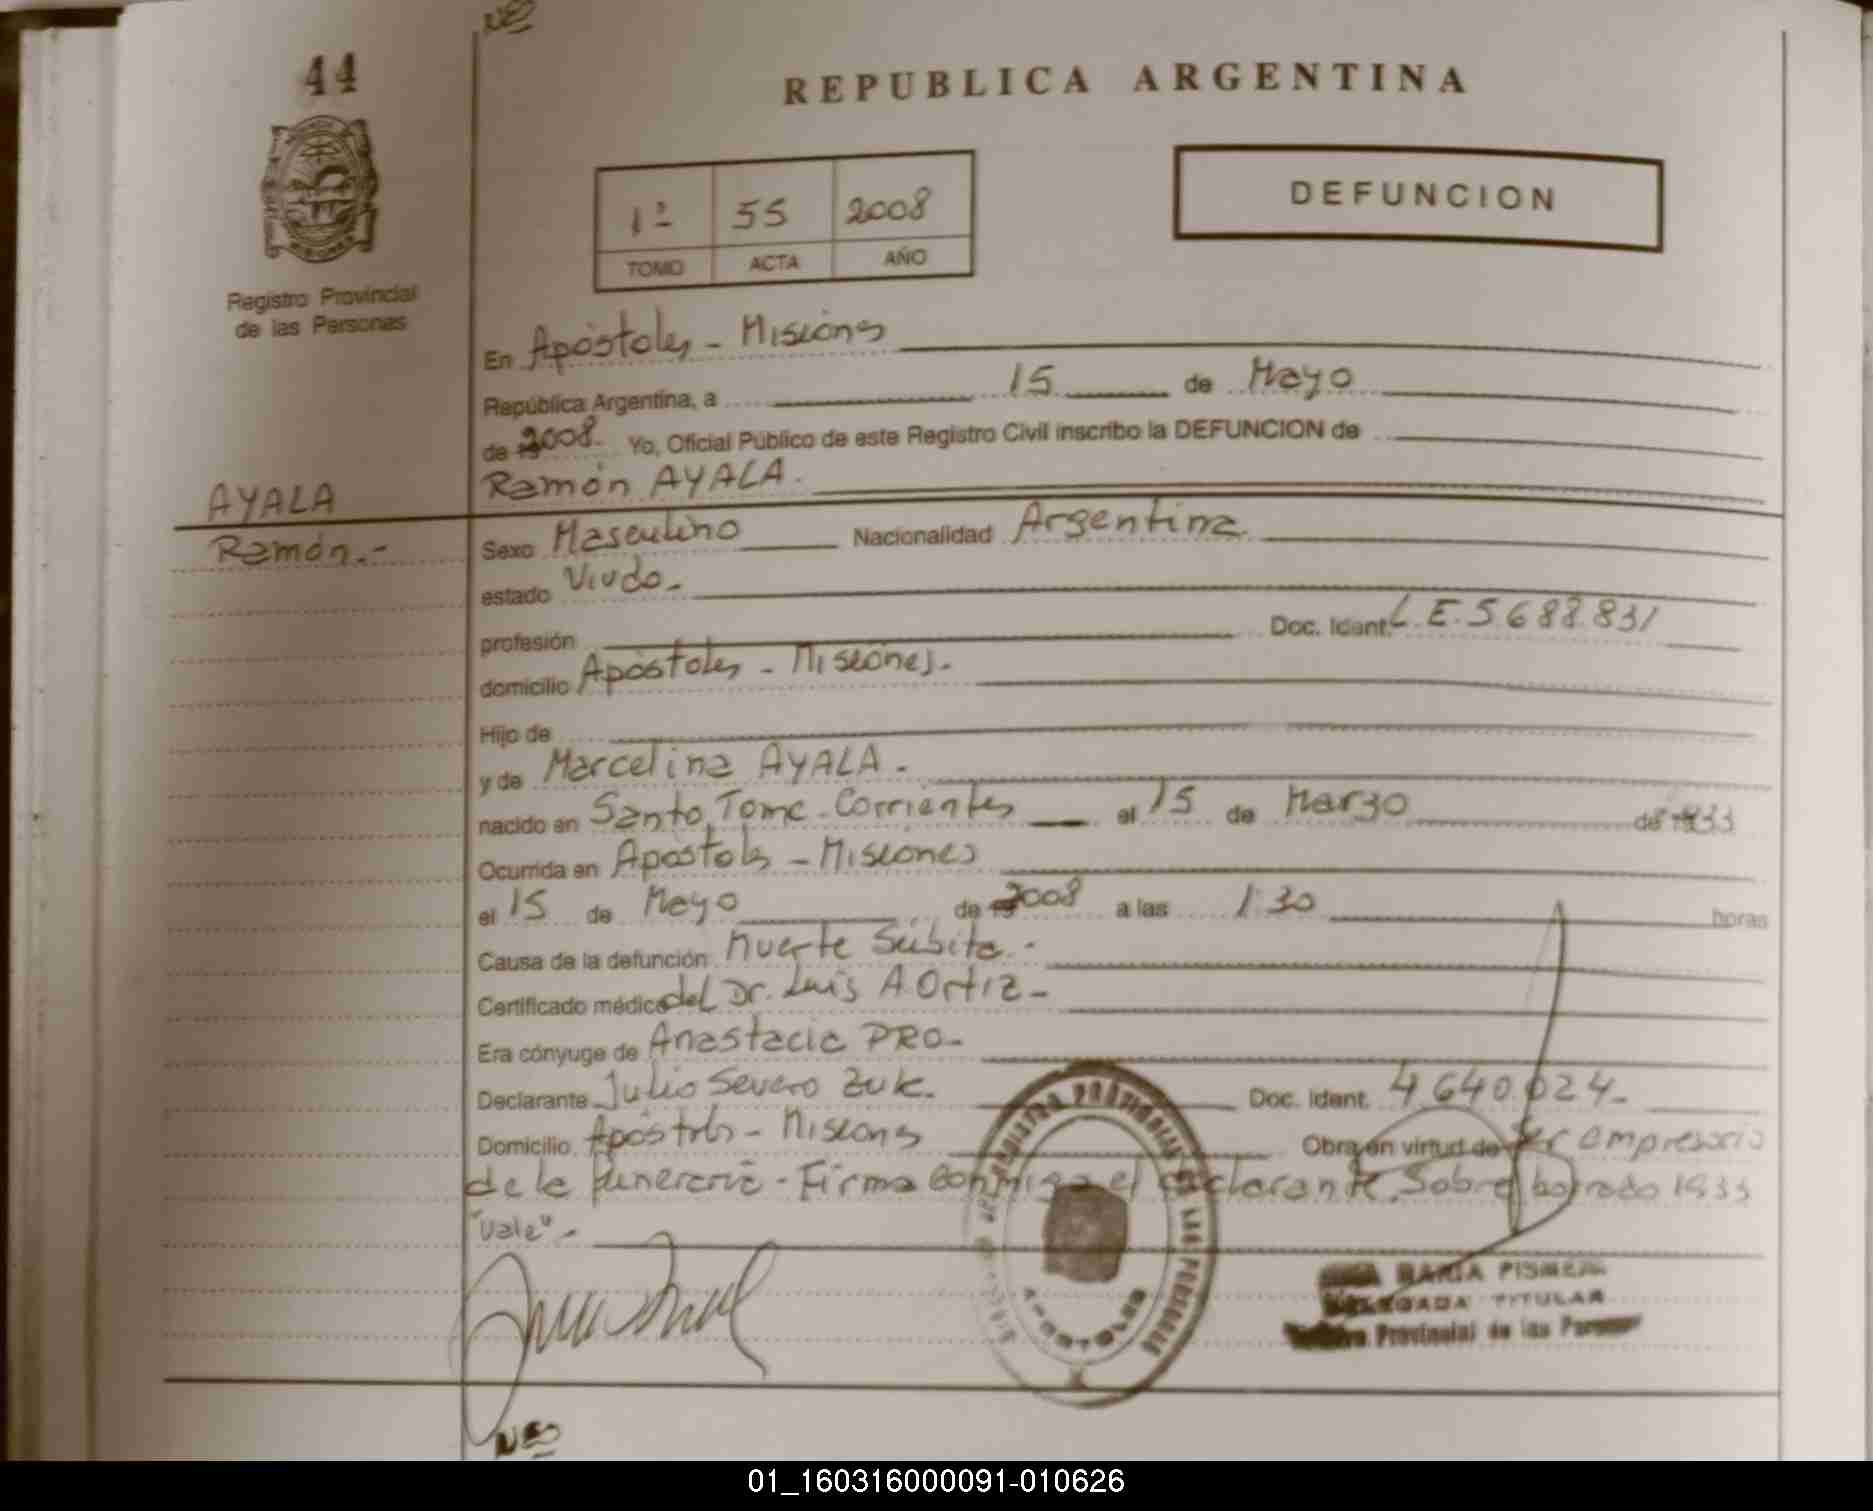 44
REPUBLICA ARGENTINA
DEFUNCION
1º 55 2008
TOMO ACTA AÑO
Registro Provincial
de las Personas
En Apóstoles - Misiones
República Argentina, a 15 de Mayo
de 2008. Yo, Oficial Público de este Registro Civil inscribo la DEFUNCION de
AYALA
Ramón AYALA.
Ramón.-
Sexo Masculino Nacionalidad Argentina.
estado Viudo.
profesión Doc. Ident. L.E. 5688.831
domicilio Apóstoles - Misiones.
Hijo de
y de Marcelina AYALA.
nacido en Santo Tomé - Corrientes el 15 de Marzo de 1933
Ocurrida en Apóstoles - Misiones
el 15 de Mayo de 2008 a las 1:30 horas
Causa de la defunción Muerte Súbita.
Certificado médico del Dr. Luis A. Ortiz -
Era cónyuge de Anastacia PRO -
Declarante Julio Severo Zuk. Doc. Ident. 4640.024.
Domicilio Apóstoles - Misiones Obra en virtud de ser empresario
de la funeraria - Firma conmigo el declarante. Sobre borrado 1933
"Vale".-
REGISTRO PROVINCIAL DE LAS PERSONAS
APOSTOLES
MARIA
DELEGADA TITULAR
Provincial de las
01_160316000091-010626